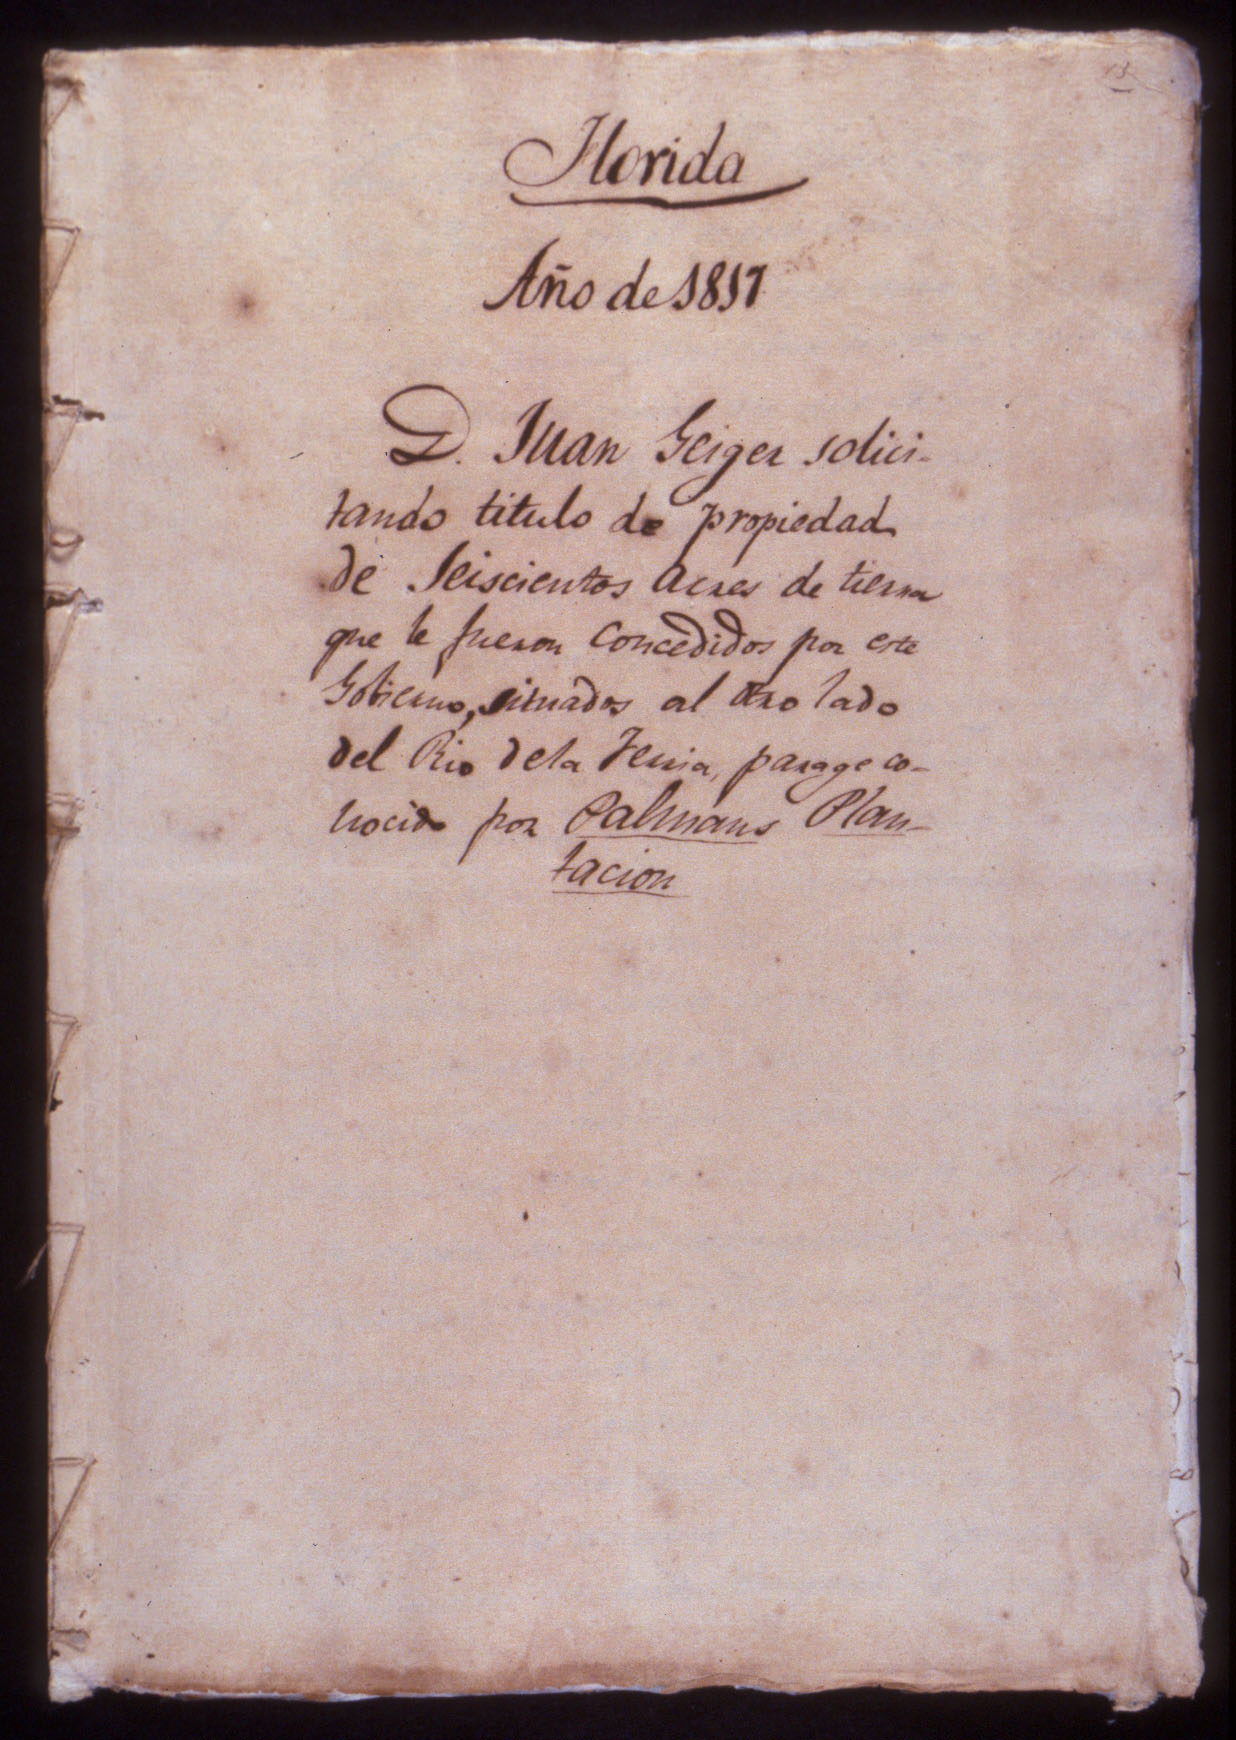 Florida
Año de 1817
D. Juan Geiger solici-
tando titulo de propiedad
de Seiscientos acres de tierra
que le fueron Concedidos por este
Gobierno, situados al otro lado
del Rio de la
parage co-
nocido por Palmans Plan-
tacion